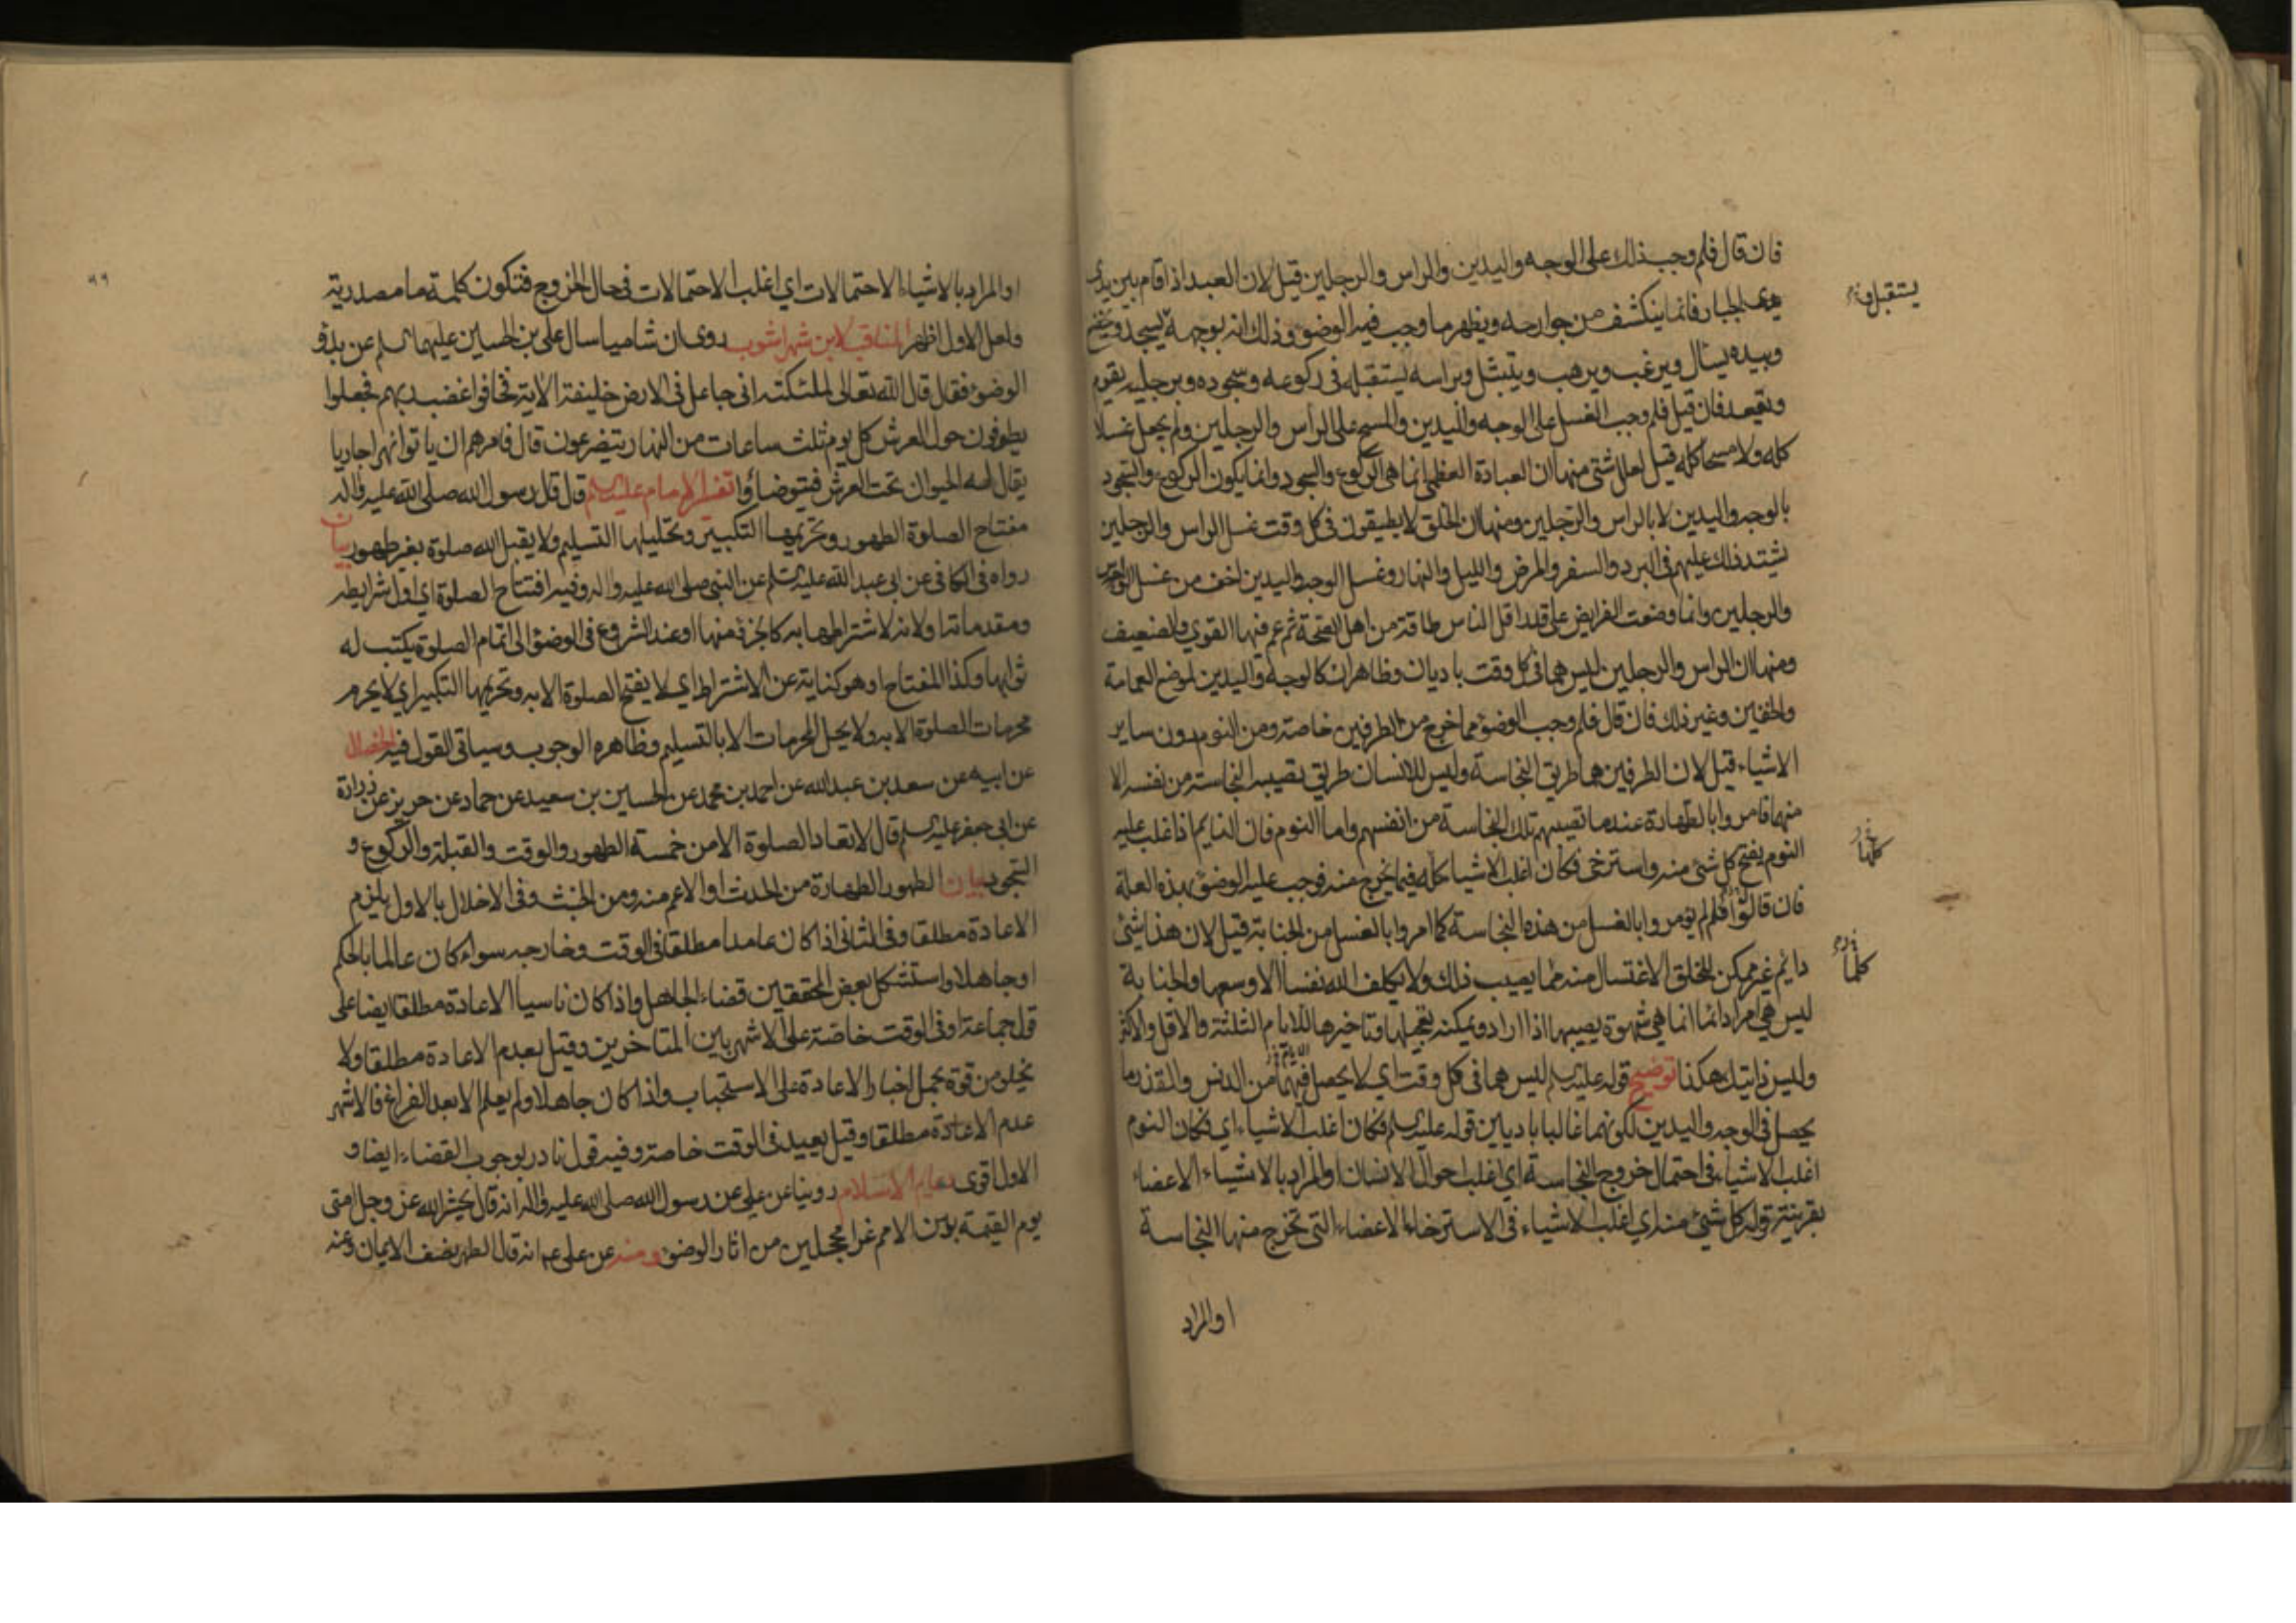 فان قال فلم وجب ذلك على الوجه واليدين والراس والرجلين قيل لان العبد اذا قام بين يدى
الجبار فانما ينكشف من جوارحه ويظهر ما وجب فيه الوضوء وذلك انه بوجهه يسجد ويخضع
يستقبل
وبيده يسال ويرغب ويرهب ويتبتل وبراسه يستقبله فى ركوعه وسجوده وبرجليه يقوم
ويقعد فان قيل فلم وجب الغسل على الوجه واليدين والمسح على الراس والرجلين ولم يجعل غسلا
كله ولا مسحا كله قيل لعلل شتى منها ان العبادة العظمى انما هى الركوع والسجود وانما يكون الركوع والسجود
بالوجه واليدين لا بالراس والرجلين ومنها ان الخلق لا يطيقون فى كل وقت غسل الراس والرجلين
يشتد ذلك عليهم فى البرد والسفر والمرض والليل والنهار وغسل الوجه واليدين اخف من غسل الراس
والرجلين وانما وضعت الفرايض على قدر اقل الناس طاقة من اهل الصحة ثم عم فيها القوي والضعيف
ومنها ان الراس والرجلين ليس هما فى كل وقت باديان وظاهران كالوجه واليدين لموضع العمامة
والخفين وغير ذلك فان قال فلم وجب الوضوء مما خرج من الطرفين خاصة ومن النوم دون ساير
الاشياء قيل لان الطرفين هما طريق النجاسة وليس للانسان طريق تصيبه النجاسة من نفسه الا
منهما فامروا بالطهارة عند ما تصيبهم تلك النجاسة من انفسهم واما النوم فان النايم اذا غلب عليه
النوم يفتح كل شئ منه واسترخى فكان اغلب الاشياء كله فيما يخرج منه فوجب عليه الوضوء بهذه العلة
كلها
فان قالوا فلم لم يؤمروا بالغسل من هذه النجاسة كما امروا بالغسل من الجنابة قيل لان هذا شئ
دائم غير ممكن للخلق الاغتسال منه مما يصيب ذلك ولا يكلف الله نفسا الا وسعها والجنابة
كلما
ليس هي امرا دائما انما هي شهوة يصيبها اذا اراد ويمكنه تعجيلها وتاخيرها للايام الثلثة والاقل والاكثر
وليس ذانيك هكذا توضيح قوله عليه السلم ليس هما فى كل وقت اي لا يحصل فيهما من الدنس والقذر ما
يحصل فى الوجه واليدين لكونهما غالبا باديين قوله عليه السلم فكان اغلب الاشياء اي فكان النوم
اغلب الاشياء فى احتمال خروج النجاسة اي اغلب احوال الانسان او المراد بالاشياء الاعضاء
بقرينة قوله كل شئ منه اي اغلب الاشياء فى الاسترخاء الاعضاء التى تخرج منها النجاسة
او المراد
او المراد بالاشياء الاحتمالات اي اغلب الاحتمالات فى حال الخروج فتكون كلمة ما مصدرية
ولعل الاول اظهر المناقب لابن شهراشوب روى ان شاميا سال على بن الحسين عليهما السلم عن بدو
الوضوء فقال قال الله تعالى لملئكته انى جاعل فى الارض خليفة الاية فخافوا غضب ربهم فجعلوا
يطوفون حول العرش كل يوم ثلث ساعات من النهار يتضرعون قال فامرهم ان ياتوا نهرا جاريا
يقال له الحيوان تحت العرش فيتوضاؤا تفسير الامام عليه السلم قال قال رسول الله صلى الله عليه واله
مفتاح الصلوة الطهور وتحريمها التكبير وتحليلها التسليم ولا يقبل الله صلوة بغير طهور بيان
رواه فى الكافى عن ابى عبد الله عليه السلم عن النبى صلى الله عليه واله وفيه افتتاح الصلوة اي اول شرايطه
ومقدماتها ولانه لاشتراطها به كالجزء منها او عند الشروع فى الوضوء الى اتمام الصلوة يكتب له
ثوابها وكذا المفتاح او هو كناية عن الاشتراط اي لا يفتح الصلوة الا به وتحريمها التكبير اي لا يحرم
محرمات الصلوة الا به ولا يحل المحرمات الا بالتسليم وظاهره الوجوب وسياتى القول فيه الخصال
عن ابيه عن سعد بن عبد الله عن احمد بن محمد عن الحسين بن سعيد عن حماد عن حريز عن زرارة
عن ابى جعفر عليه السلم قال لا تعاد الصلوة الا من خمسة الطهور والوقت والقبلة والركوع و
السجود بيان الطهور الطهارة من الحدث او الاعم منه ومن الخبث وفى الاخلال بالاول يلزم
الاعادة مطلقا وفى الثانى اذا كان عامدا مطلقا فى الوقت وخارجه سواء كان عالما بالحكم
او جاهلا واستشكل بعض المحققين قضاء الجاهل واذا كان ناسيا الاعادة مطلقا ايضا على
قول جماعة او فى الوقت خاصة على الاشهر بين المتاخرين وقيل بعدم الاعادة مطلقا ولا
يخلو من قوة بحمل اخبار الاعادة على الاستحباب واذا كان جاهلا ولم يعلم الا بعد الفراغ فالاشهر
عدم الاعادة مطلقا وقيل يعيد فى الوقت خاصة وفيه قول نادر بوجوب القضاء ايضا و
الاول اقوى دعايم الاسلام روينا عن على عن رسول الله صلى الله عليه واله انه قال يحشر الله عز وجل امتى
يوم القيمة بين الامم غرا محجلين من اثار الوضوء ومنه عن على ع انه قال الطهر نصف الايمان وعنه